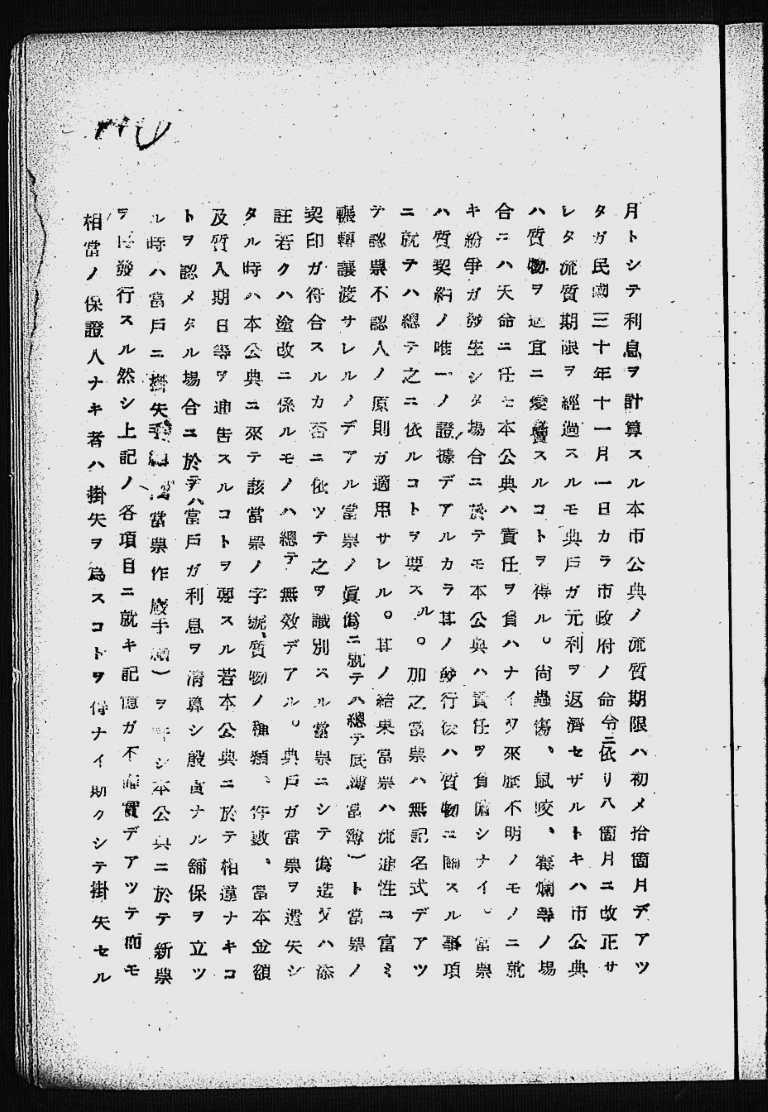 月トシテ利息ヲ計算スル本市公典ノ流質期限ハ初メ拾箇月デアツ
タガ民國三十年十一月一日カラ市政府ノ命令ニ依リ八箇月ニ改正サ
レタ流質期限ヲ經過スルモ典戸ガ元利ヲ返濟セザルトキハ市公典
ハ質物ヲ適宜ニ變賣スルコトヲ得ル。尚蟲傷、鼠咬、霉爛等ノ場
合ニハ天命ニ任セ本公典ハ責任ヲ負ハナイ又來歴不明ノモノニ就
キ紛爭ガ發生シタ場合ニ於テモ本公典ハ責任ヲ負擔シナイ。當票
ハ質契約ノ唯一ノ證據デアルカラ其ノ發行後ハ質物ニ關スル事項
ニ就テハ總テ之ニ依ルコトヲ要スル。加之當票ハ無記名式デアツ
テ認票不認人ノ原則ガ適用サレル。其ノ結果當票ハ流通性ニ富ミ
輾轉讓渡サレルノデアル當票ノ眞僞ニ就テハ總テ底簿當簿)ト當票ノ
契印ガ符合スルカ否ニ依ツテ之ヲ識別スル當票ニシテ僞造又ハ添
註若クハ塗改ニ係ルモノハ總テ無效デアル。典戸ガ當票ヲ遺失シ
タル時ハ本公典ニ來テ該當票ノ字號、質物ノ種類、件數、當本金額
及質入期日等ヲ通告スルコトヲ要スル若本公典ニ於テ相違ナキコ
トヲ認メタル場合ニ於テハ當戸ガ利息ヲ清算シ殷實ナル舖保ヲ立ツ
ル時ハ當戸ニ掛失手續 當票作廢手續)ヲ シ本公典ニ於テ新票
ヲ 發行スル然シ上記ノ各項目ニ就キ記憶ガ不確實デアツテ而モ
相當ノ保證人ナキ者ハ掛失ヲ爲スコトヲ得ナイ斯クシテ掛失セル